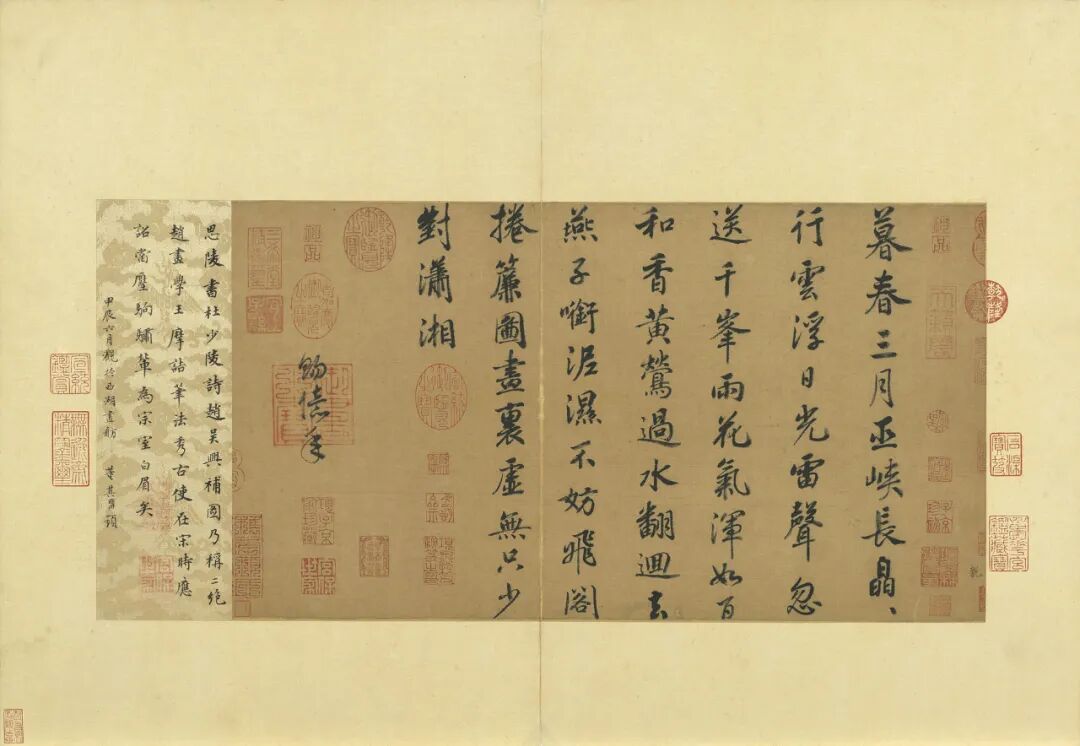 暮春三月巫峽長晶、
行雲浮日光雷聲忽
送千峯雨花氣渾如百
和香黃鶯過水翻迴去
燕子銜泥濕不妨飛閣
捲簾圖畫裏虛無只少
對瀟湘
賜億年
思陵書杜少陵詩趙吳興補圖乃稱二絶
趙畫學王摩詰筆法秀古使在宋時應
詔當壓駒驌輩為宗室白眉矣
甲辰六月觀於西湖畫舫 董其昌題
乾隆
石渠寶笈